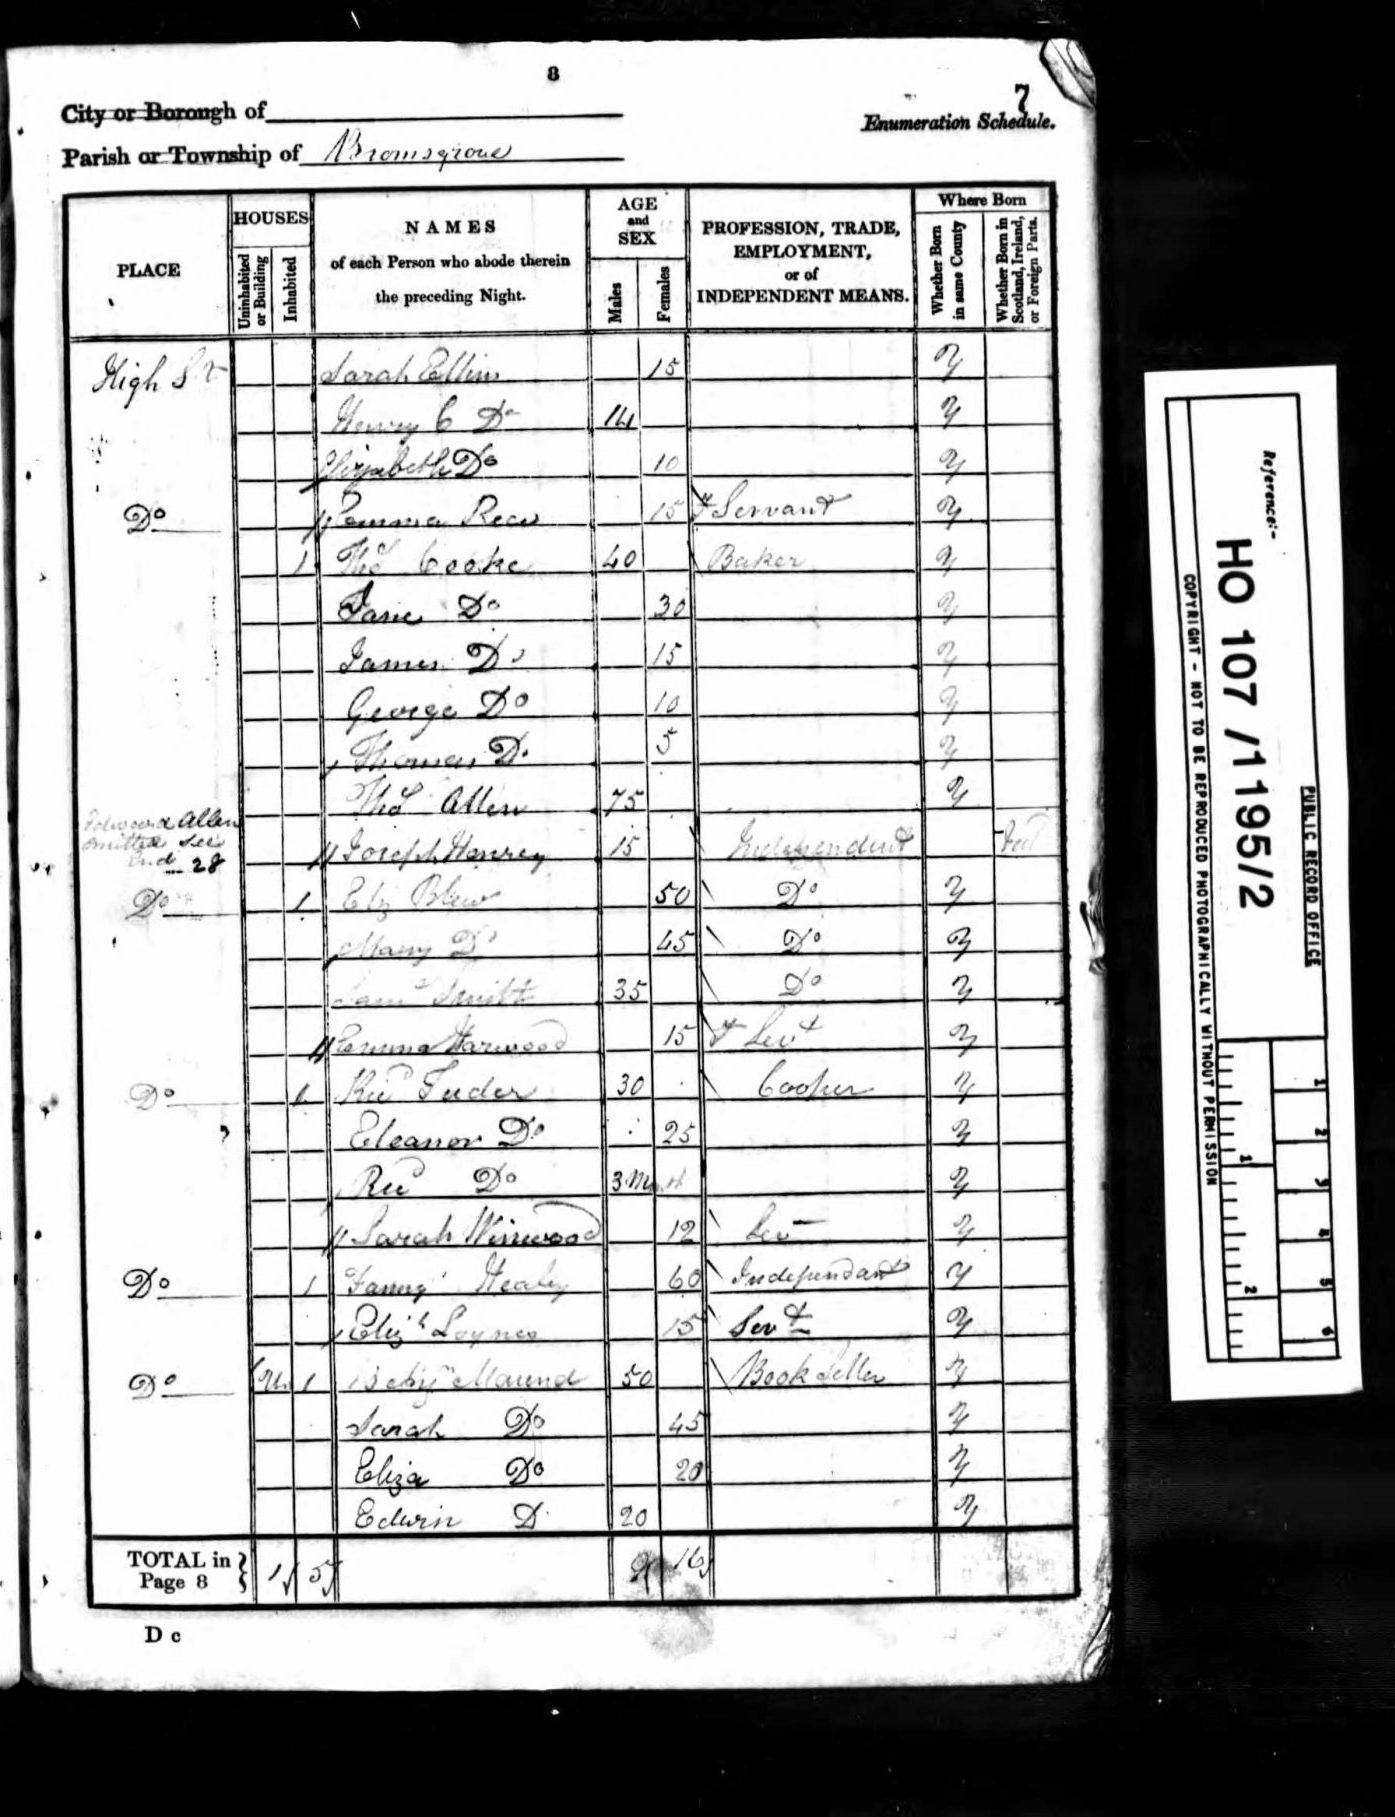 8
7
City or Borough of
Enumeration Schedule.
Parish or Township of Bromsgrove
PLACE
HOUSES
Uninhabited or Building
Inhabited
NAMES
of each Person who abode therein
the preceding Night.
AGE
and
SEX
Males
Females
PROFESSION, TRADE,
EMPLOYMENT,
or of
INDEPENDENT MEANS.
Where Born
Whether Born in same County
Whether Born in Scotland, Ireland, or Foreign Parts.
High St Sarah Ellins 15 Y
Henry C Do 14 Y
Elizabeth Do 10 Y
Do Emma Rece 15 F Servant Y
1 Thos Cooke 40 Baker Y
Jane Do 30 Y
James Do 15 Y
George Do 10 Y
Thomas Do 5 Y
Thos Allen 75 Y
Edward Allen
omitted see
End 28
Joseph Henrey 15 Independent
Do 1 Eliz Blew 50 Do Y
Mary Do 45 Do Y
Saml Smith 35 Do Y
Emma Harwood 15 F Sevt Y
Do 1 Ricd Tuder 30 Cooper Y
Eleanor Do 25 Y
Ricd Do 3 Month Y
Sarah Winwood 12 Sev Y
Do 1 Fanny Healey 60 Independant Y
Elizh Loynes 15 Sevt Y
Do 1 Maund 50 Book Seller Y
Sarah Do 45 Y
Eliza Do 20 Y
Edwin D 20 Y
TOTAL in
Page 8
1 5 9 16
D c
Reference:-
HO 107 /1195/2
PUBLIC RECORD OFFICE
COPYRIGHT - NOT TO BE REPRODUCED PHOTOGRAPHICALLY WITHOUT PERMISSION
1 2 3 4 5 6
1 2